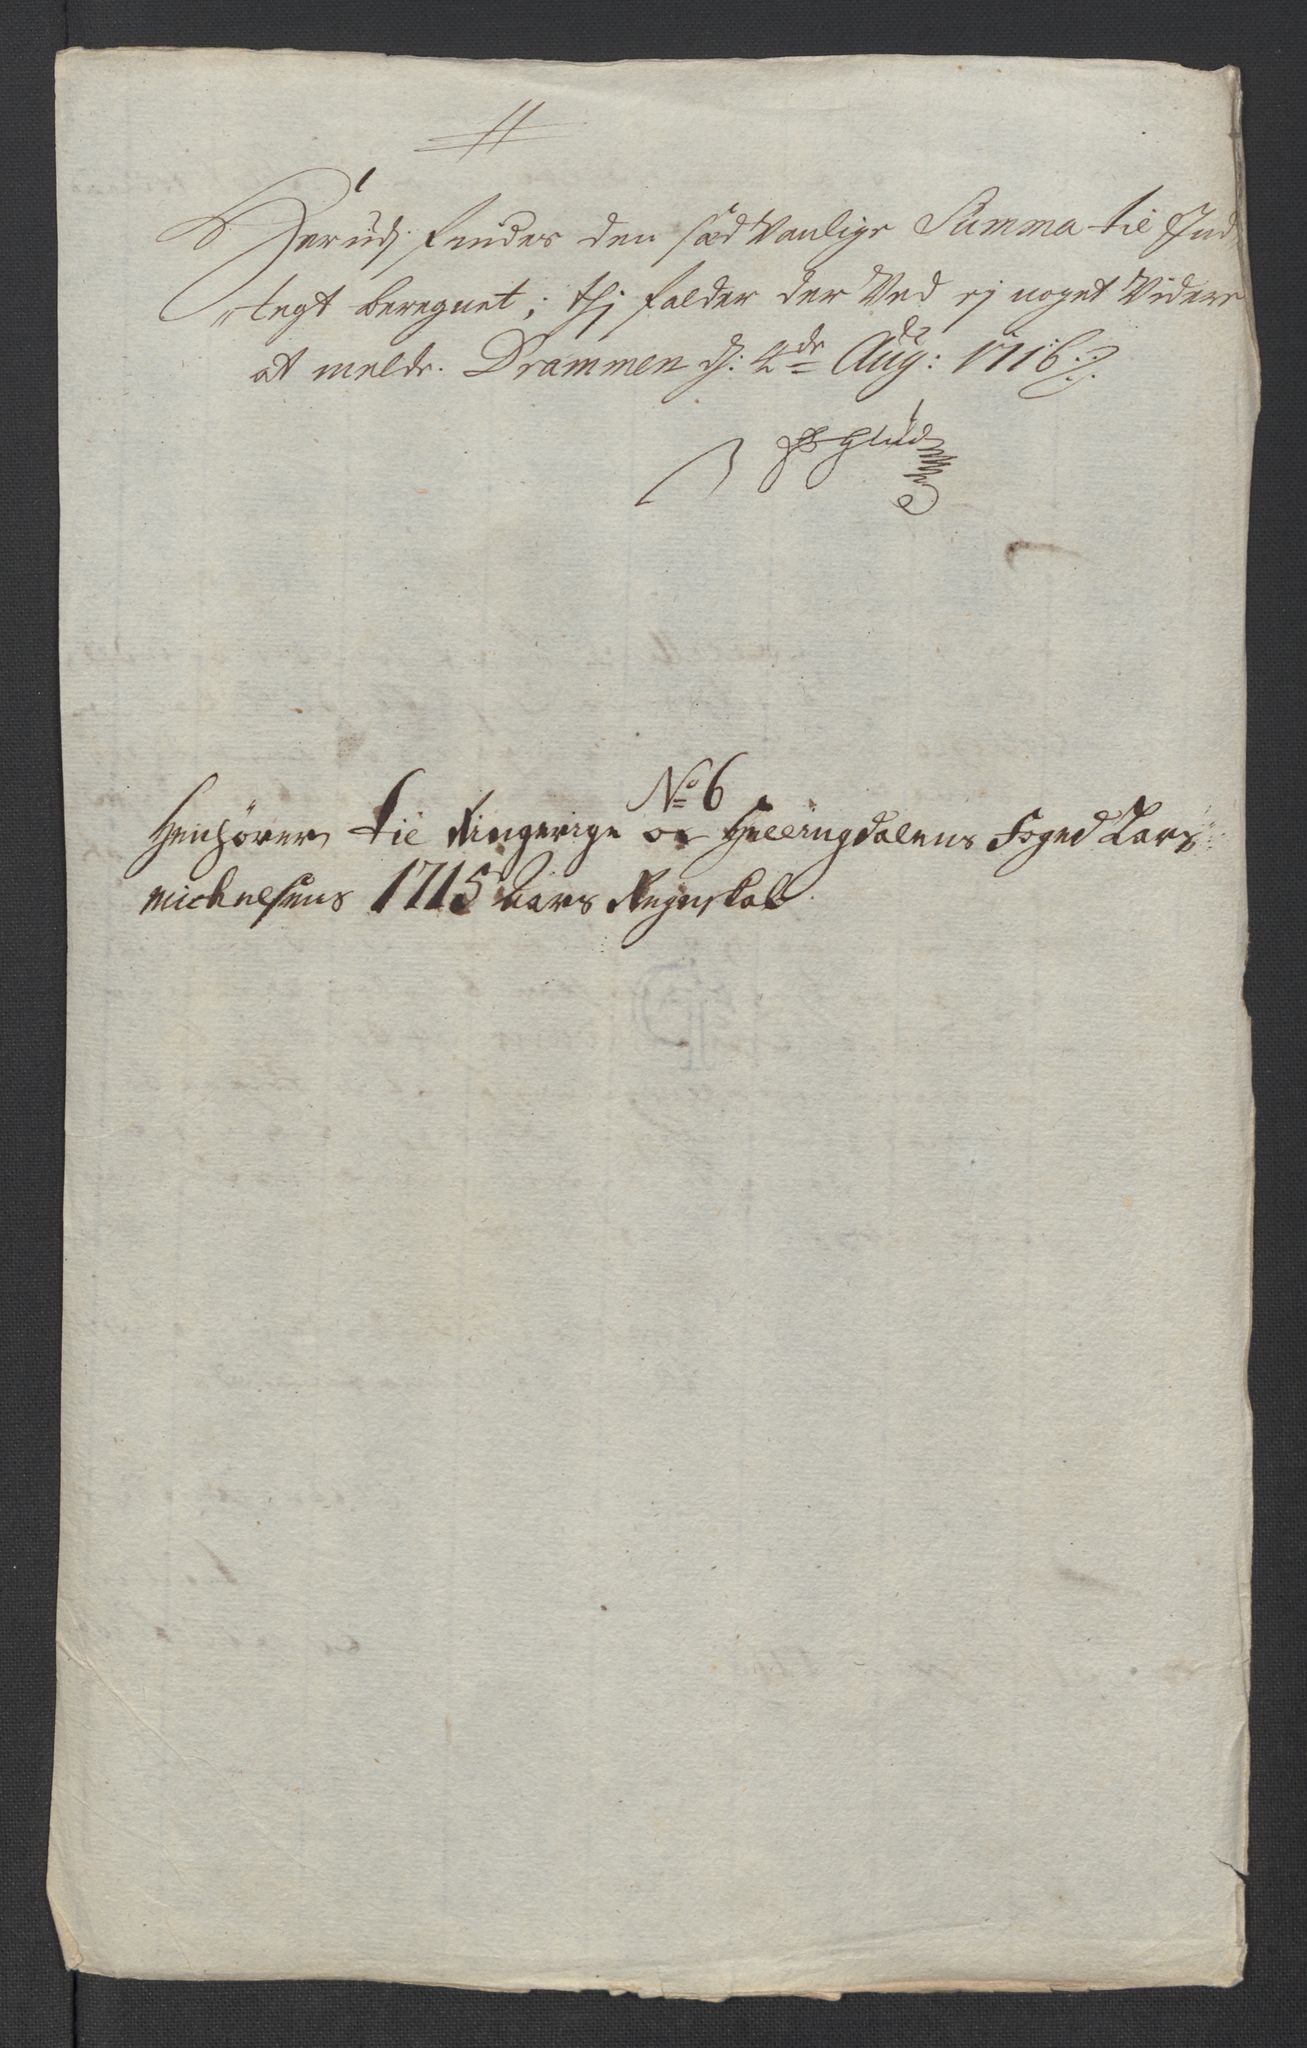 Herudj findes den sædVanlige Summa til Ind
tegt beregnet; thj falder der Ved ej noget Videre
at melde. Drammen d: 4de Aug: 1716
Glud
No 6
Henhörer til Ringerige og Hallingdalens Foged Lars
Michelsens 1715 Aars Regnskab